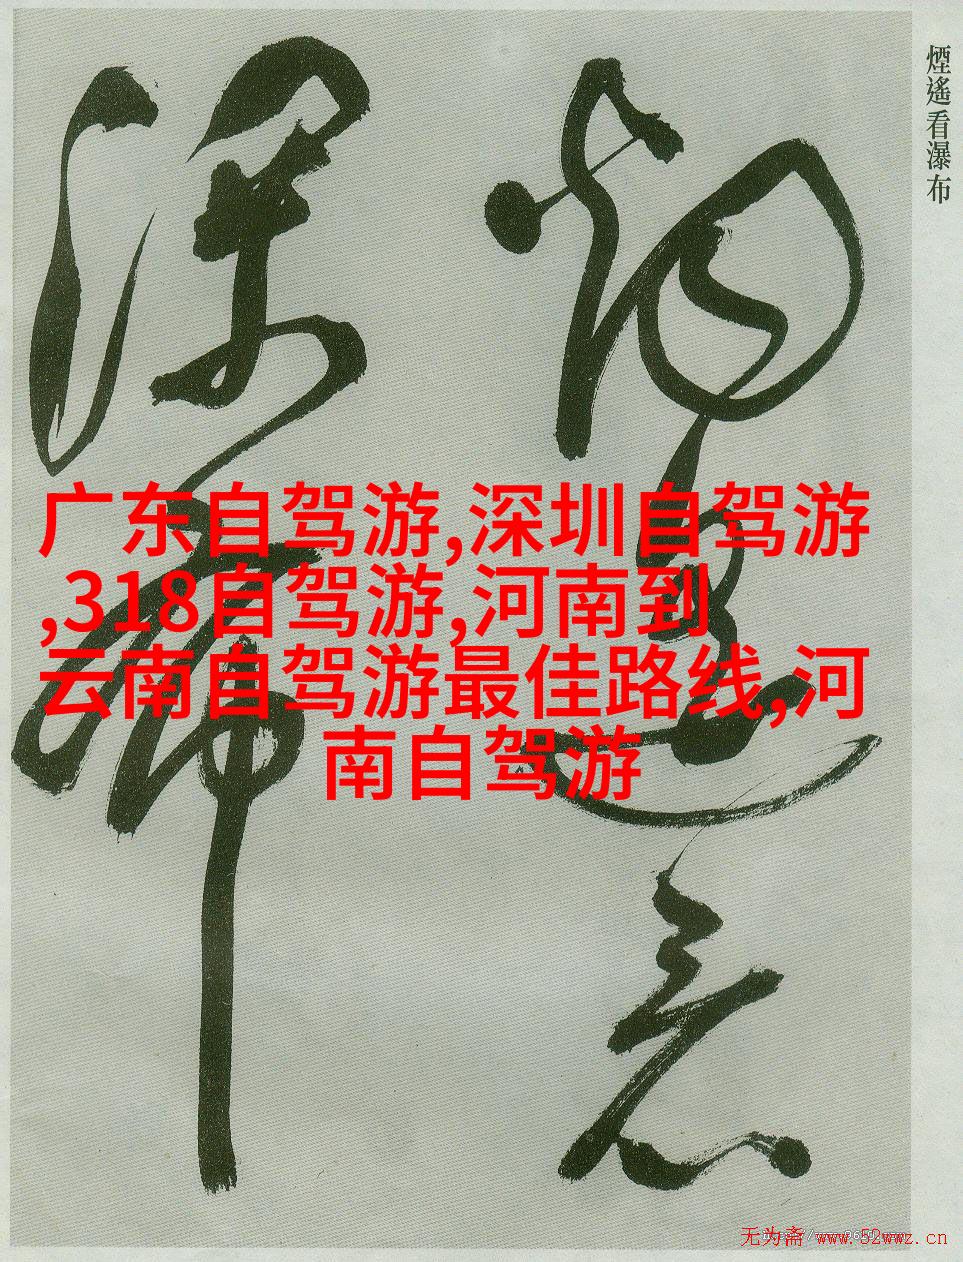 煙遙看瀑布
烟遥看
瀑布
广东自驾游,深圳自驾游
,318自驾游,河南到
云南自驾游最佳路线,河
南自驾游
无为斋 www.52wwz.cn